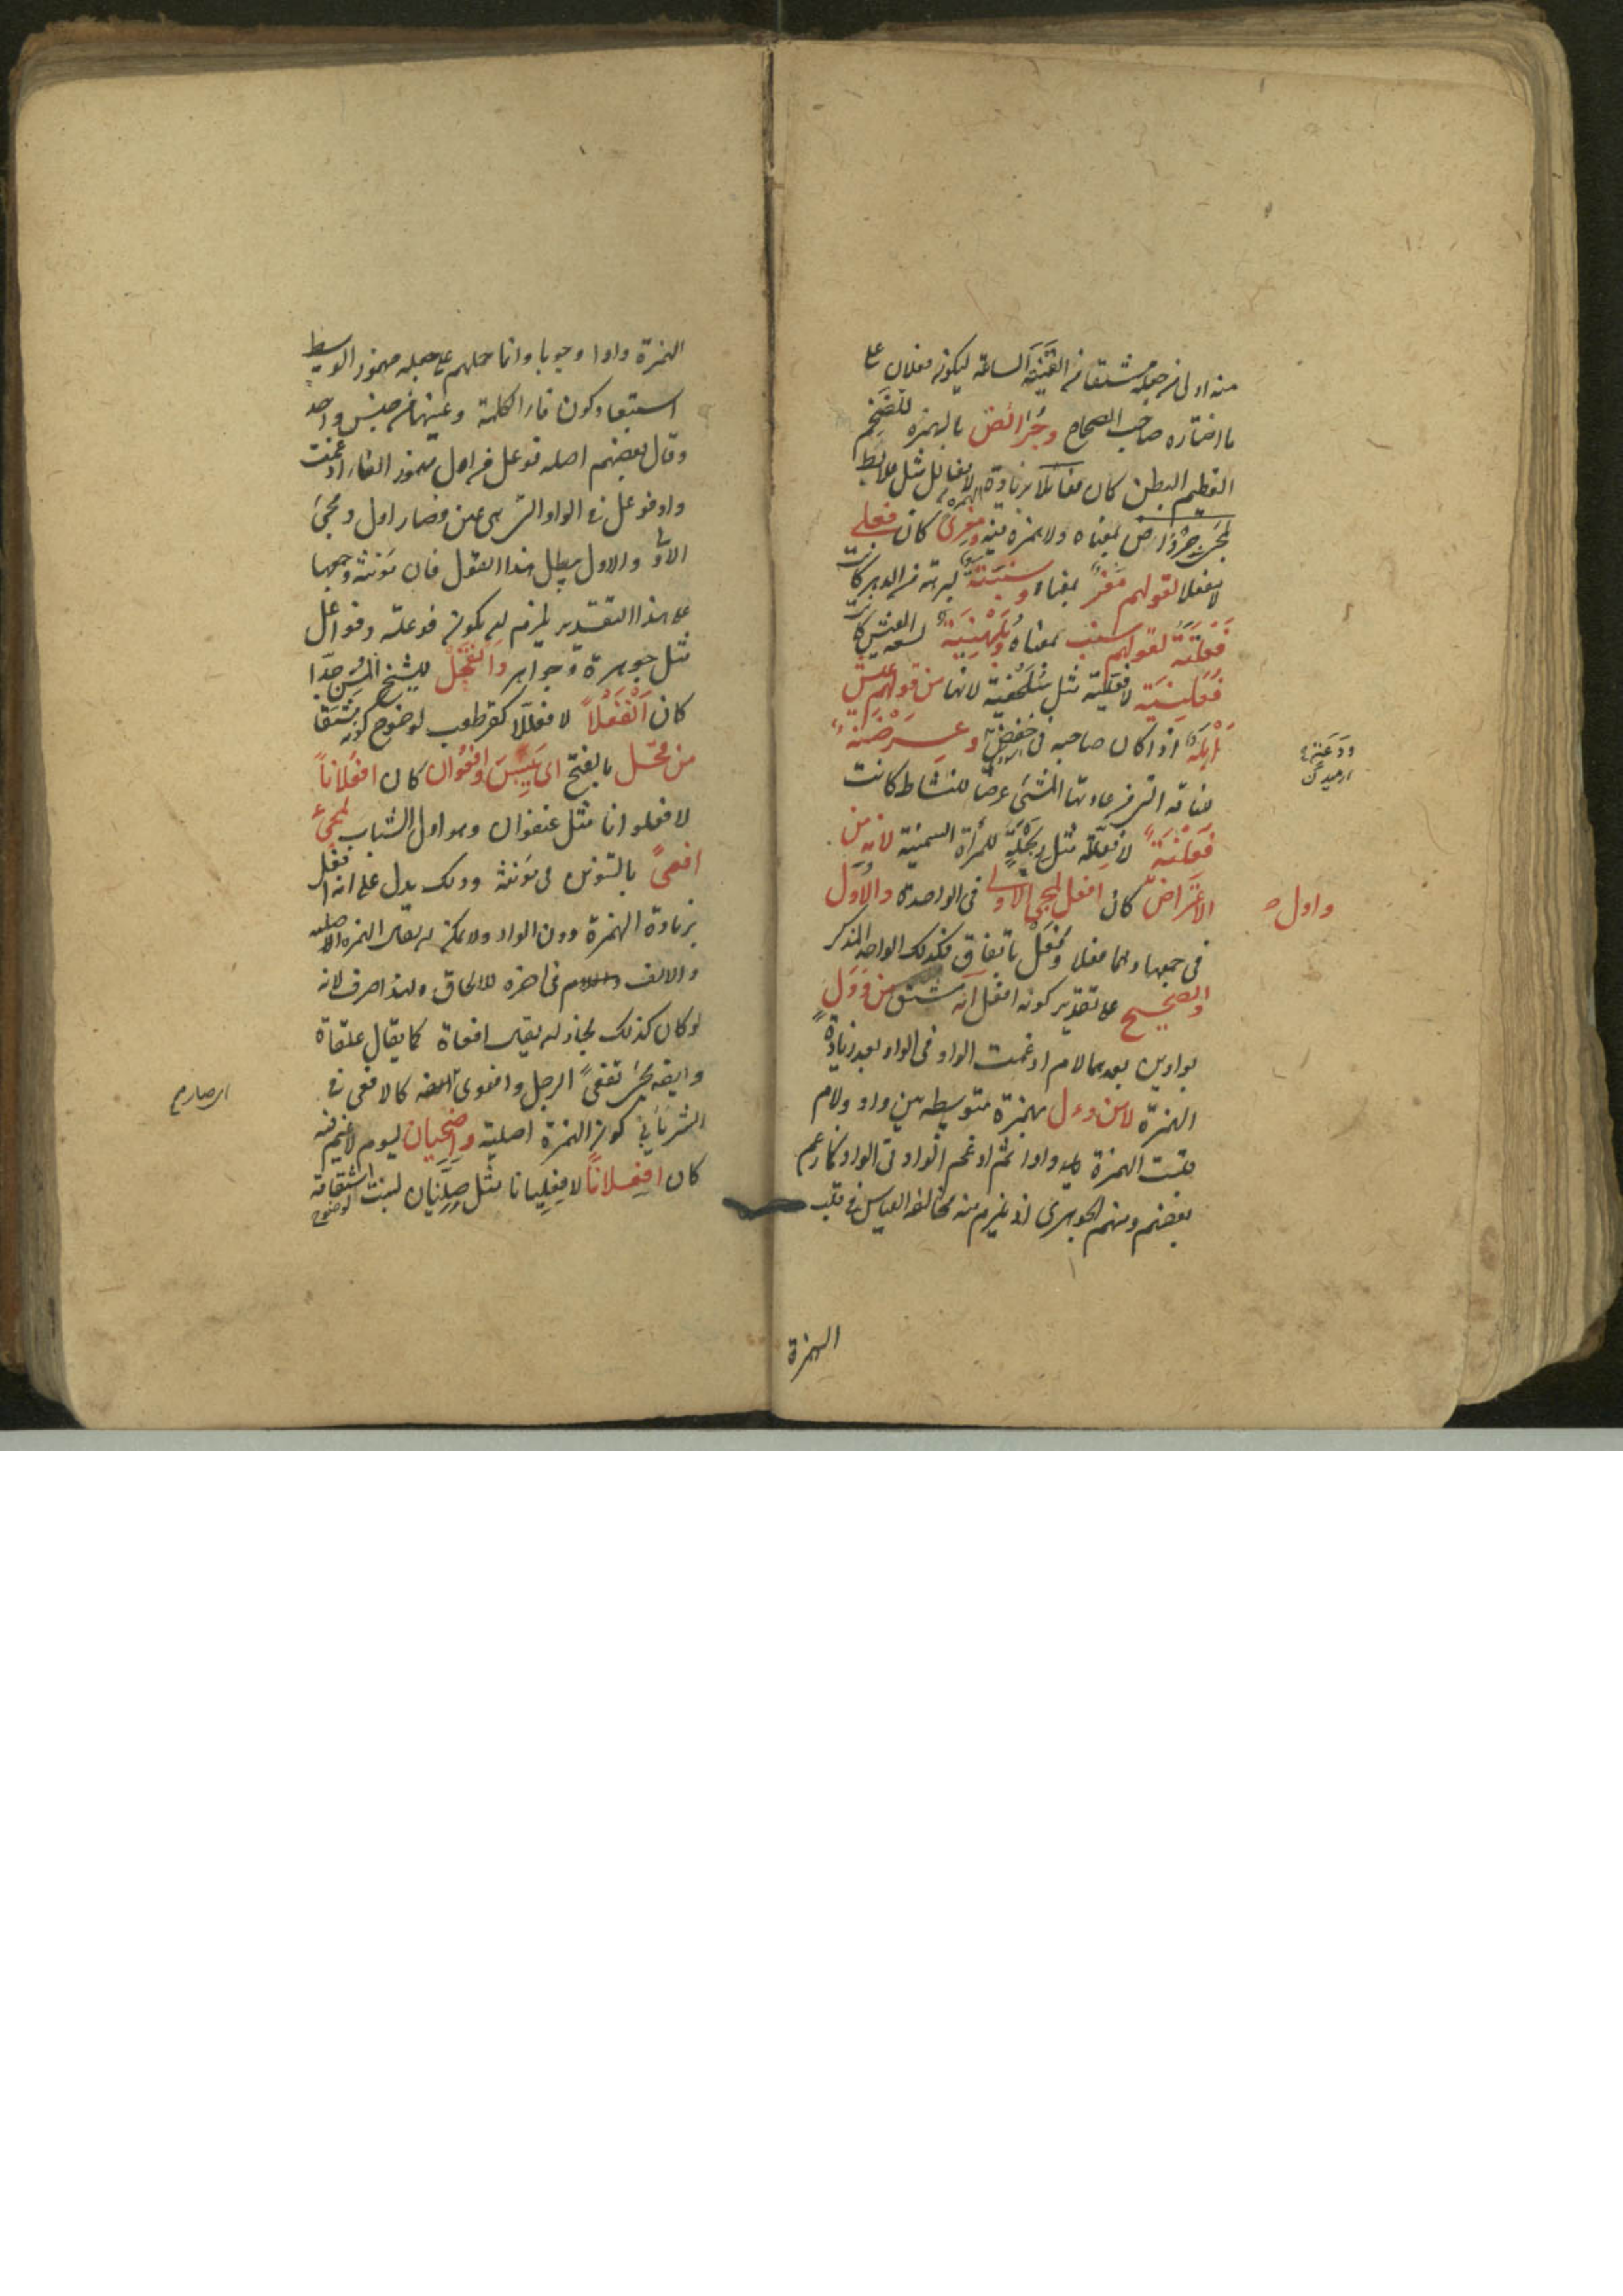 منه اولى من جعله مشتقا من الفينة الساعة ليكون فعلان على
ما اختاره صاحب الصحاح وجُرَائض بالهمزة للضخم
العظيم البطن كان فعائلا بزيادة الهمزة لا فعالل مثل علابط
لمجئ جرواض بمعناه ولا همزة فيه ومعزى كان فعلى
لا مفعلا لقولهم مَعْز بمعناه وسنبتة لبرهة من الدهر كانت
فَعْلَتَة لقولهم سنب بمعناه وبُلَهْنِيَة لسعة العيش كانت
فُعَلْنِيَة لا فعلّية مثل سُلَحْفية لانها من قولهم عيش
أَبْلَه اذا كان صاحبه فى خفض وعِرَضْنَة
لناقة التى من عادتها المشى عرضا للنشاط كانت
فِعَلْنَة لا فعلّة مثل ربحلة للمرأة السمينة لانه من
الاعتراض كان افعل لمجئ الاولى فى الواحدة والاُوَل
واول
فى جمعها وهما فعلى وفُعَل باتفاق فكذلك الواحد المذكر
والصحيح على تقدير كونه افعل انه مشتق من وَوَل
بواوين بعدهما لام ادغمت الواو فى الواو بعد زيادة
الهمزة لا من وءل بهمزة متوسطة بين واو ولام
قلبت الهمزة فيه واوا ثم ادغم الواو فى الواو كما زعم
بعضهم ومنهم الجوهرى اذ يلزم منه مخالفة القياس فى قلب
الهمزة
الهمزة واوا وجوبا وانما حملهم على جعله مهموز الوسط
استبعاد كون فاء الكلمة وعينها من جنس واحد
وقال بعضهم اصله فوعل من اءل مهموز الفاء ادغمت
واو فوعل فى الواو التى هى عين فصار اول ومجئ
الاُوَل والاولى يبطل هذا القول فان مؤنثه وجمعها
على هذا التقدير يلزم ان يكون فوعلة وفواعل
مثل جوهرة وجواهر وانقحل للشيخ المسن جدا
كان انْفَعْلاً لا فعللّا كقرطعب لوضوح كونه مشتقا
من قحل بالفتح اى يَبِسَ وافعوان كان افعُلاناً
لا فعلوانا مثل عنفوان وهو اول الشباب لمجئ
افعىً بالتنوين فى مؤنثه وذلك يدل على انه افعل
بزيادة الهمزة دون الواو ولا يمكن ان يقال الهمزة اصلية
والالف فى اخره للالحاق ولهذا صرف لانه
لو كان كذلك لجاز ان يقال افعاة كما يقال علقاة
وايضا لمجئ تفعى الرجل كالافعى فى
الشر ينافى كون الهمزة اصلية واضحيان ليوم لا غيم فيه
كان افعِلاناً لا فعليانا مثل صِلّيان لنبت لوضوح اشتقاقه
اى صار